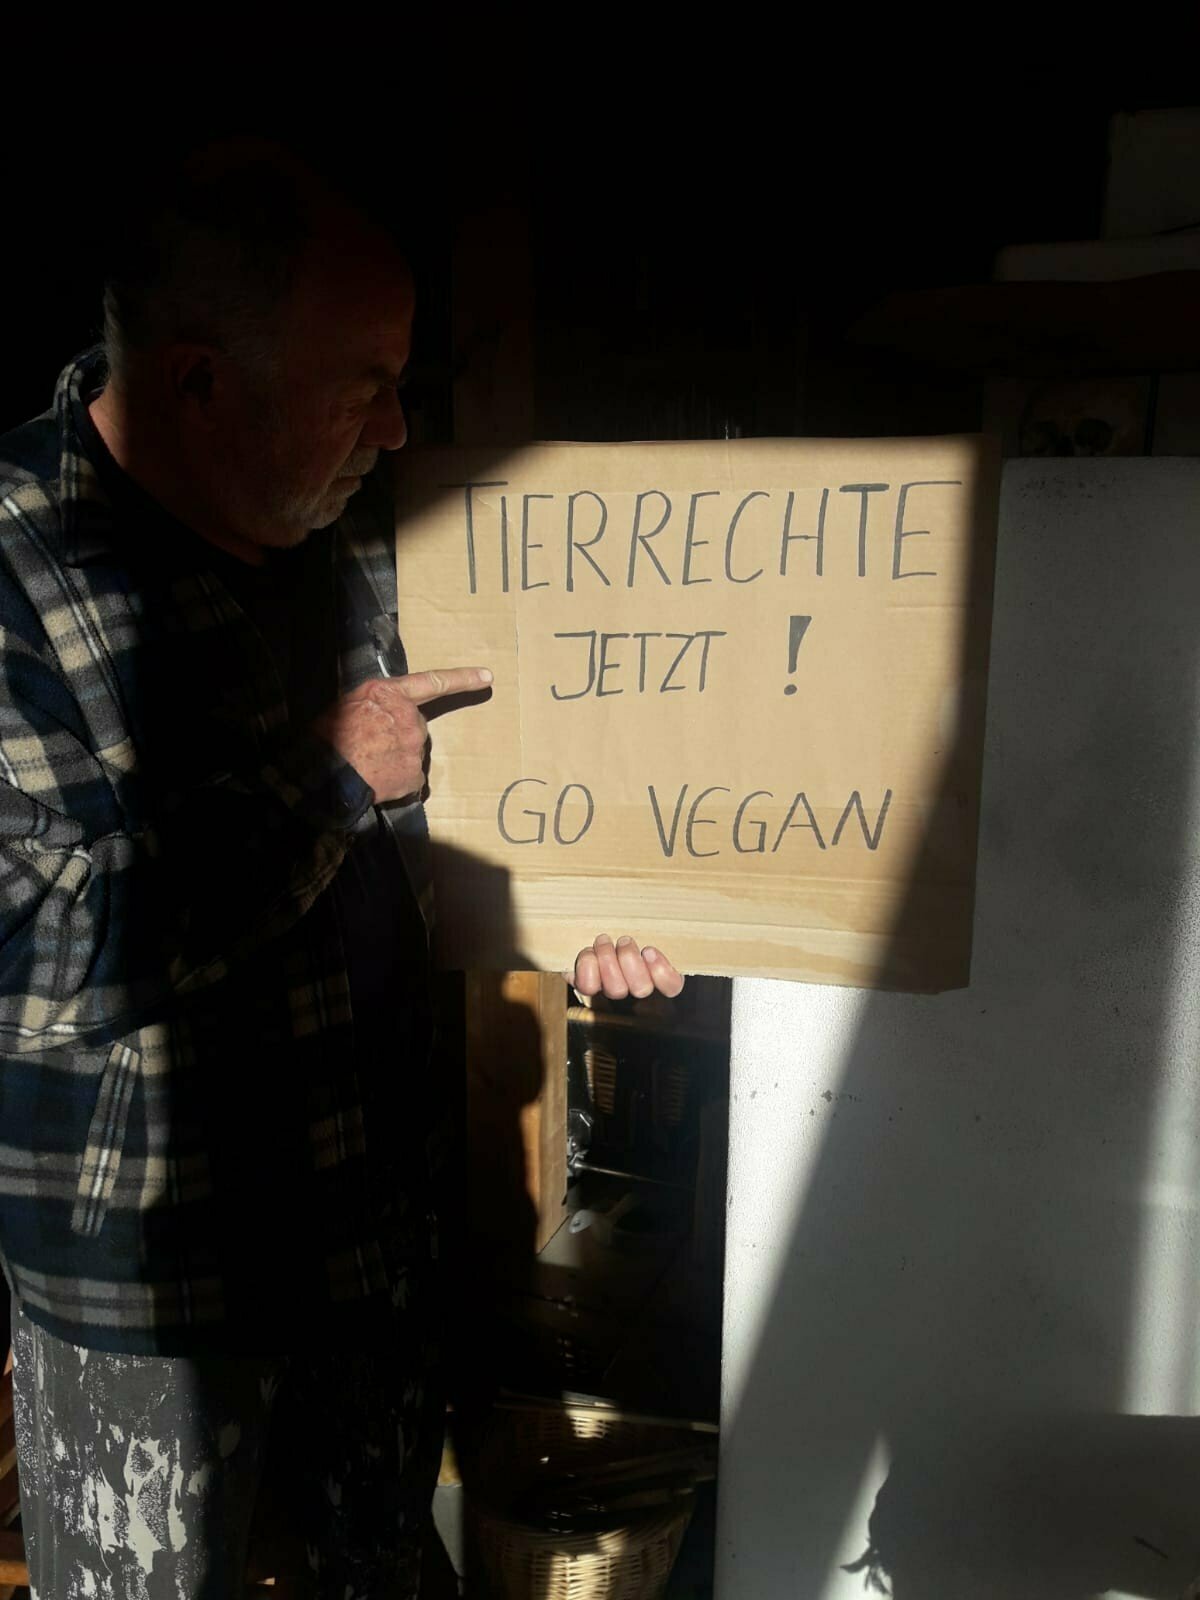 TIERRECHTE
JETZT !
GO VEGAN